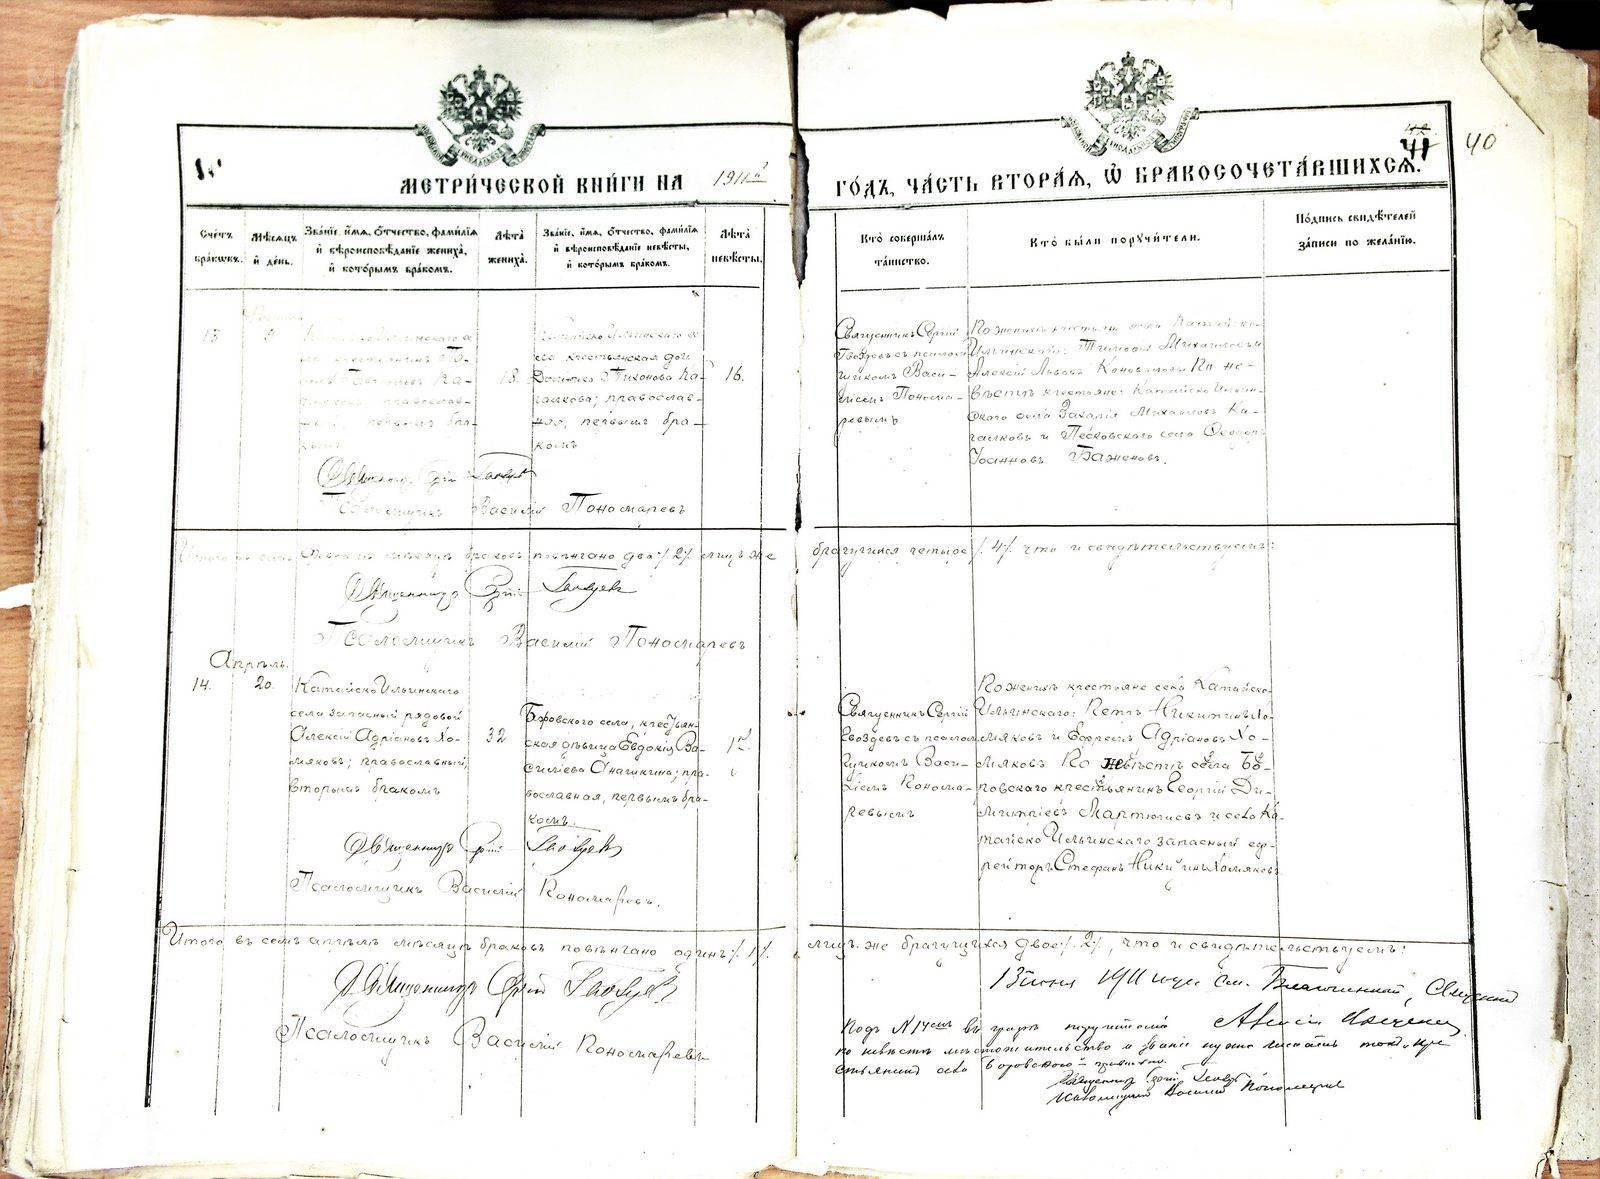 МЕТРИ́ЧЕСКОЙ КНИ́ГИ НА 1911й ГО́ДЪ, ЧА́СТЬ ВТОРА́Я, Ѿ БРАКОСОЧЕТА́ВШИХСЯ.
42.
41
40
Сче́тъ
бра́ковъ.
Мѣ́сяцъ
и҆ де́нь.
Зва́нїе, и҆́мя, ѻ҆́тчество, фами́лїя
и҆ вѣроисповѣ́данїе жениха̀,
и҆ кото́рымъ бра́комъ.
Лѣ́та
жениха̀.
Зва́нїе, и҆́мя, ѻ҆́тчество, фами́лїя
и҆ вѣроисповѣ́данїе невѣ́сты,
и҆ кото́рымъ бра́комъ.
Лѣ́та
невѣ́сты.
Кто̀ соверша́лъ
та́инство.
Кто̀ бы́ли поручи́тели.
По́дпись свидѣ́телей
за́писи по жела́нїю.
13
9
православ-
первымъ бра-
комъ
18.
села крестьянская дочь
Тихонова Ка-
галкова; православ-
ная, первымъ бра-
комъ
16.
Священникъ Сергій
Гвоздевъ съ псалом-
щикомъ Васи-
ліемъ Понома-
ревымъ
По женихѣ крестьяне села Катайско-
Ильинскаго: Тимофей Михайловъ и
Алексѣй Львовъ Коноваловы По не-
вѣстѣ крестьяне: Катайско Ильин-
скаго села Захарія Михайловъ Ка-
галковъ и Песковскаго села Ѳеодоръ
Іоанновъ Баженовъ.
Священникъ Сергій Гвоздевъ
Псаломщикъ Василій Пономаревъ
мѣсяцѣ браковъ повѣнчано два /.2/. лицъ же брачущихся четыре /.4/. что и свидѣтельствуемъ:
Священникъ Сергій Гвоздевъ
Псаломщикъ Василій Пономаревъ
Апрѣль.
14.
20.
Катайско Ильинскаго
села запасный рядовой
Алексій Адріановъ Хо-
мяковъ; православный,
вторымъ бракомъ
32
Боровского села, крестьян-
ская дѣвица Евдокія Ва-
силіева Анашкина; пра-
вославная, первымъ бра-
комъ.
Священникъ Сергій
Гвоздевъ съ псалом-
щикомъ Васи-
ліемъ Понома-
ревымъ
По женихѣ крестьяне села Катайско-
Ильинскаго: Петръ Никитинъ Хо-
мяковъ и Ефремъ Адріановъ Хо-
мяковъ По невѣстѣ села Бо-
ровскаго крестьянинъ Георгій Ди-
митріевъ Мартюшевъ и села Ка-
тайско Ильинскаго запасный еф-
рейторъ Стефанъ Никитинъ Хомяковъ
Священникъ Сергій Гвоздевъ
Псаломщикъ Василій Пономаревъ.
Итого въ семъ апрѣлѣ мѣсяцѣ браковъ повѣнчано одинъ /.1/. лицъ же брачущихся двое /.2/., что и свидѣтельствуемъ:
Священникъ Сергій Гвоздевъ
Псаломщикъ Василій Пономаревъ
13 іюня 1911 года см. Благочинный, Священникъ
Подъ № 14 въ графѣ поручители
по невѣстѣ мѣстожительство и званіе нужно писать такъ: кре-
стьянинъ села Боровского
Священникъ Сергій Гвоздевъ
Псаломщикъ Василій Пономаревъ